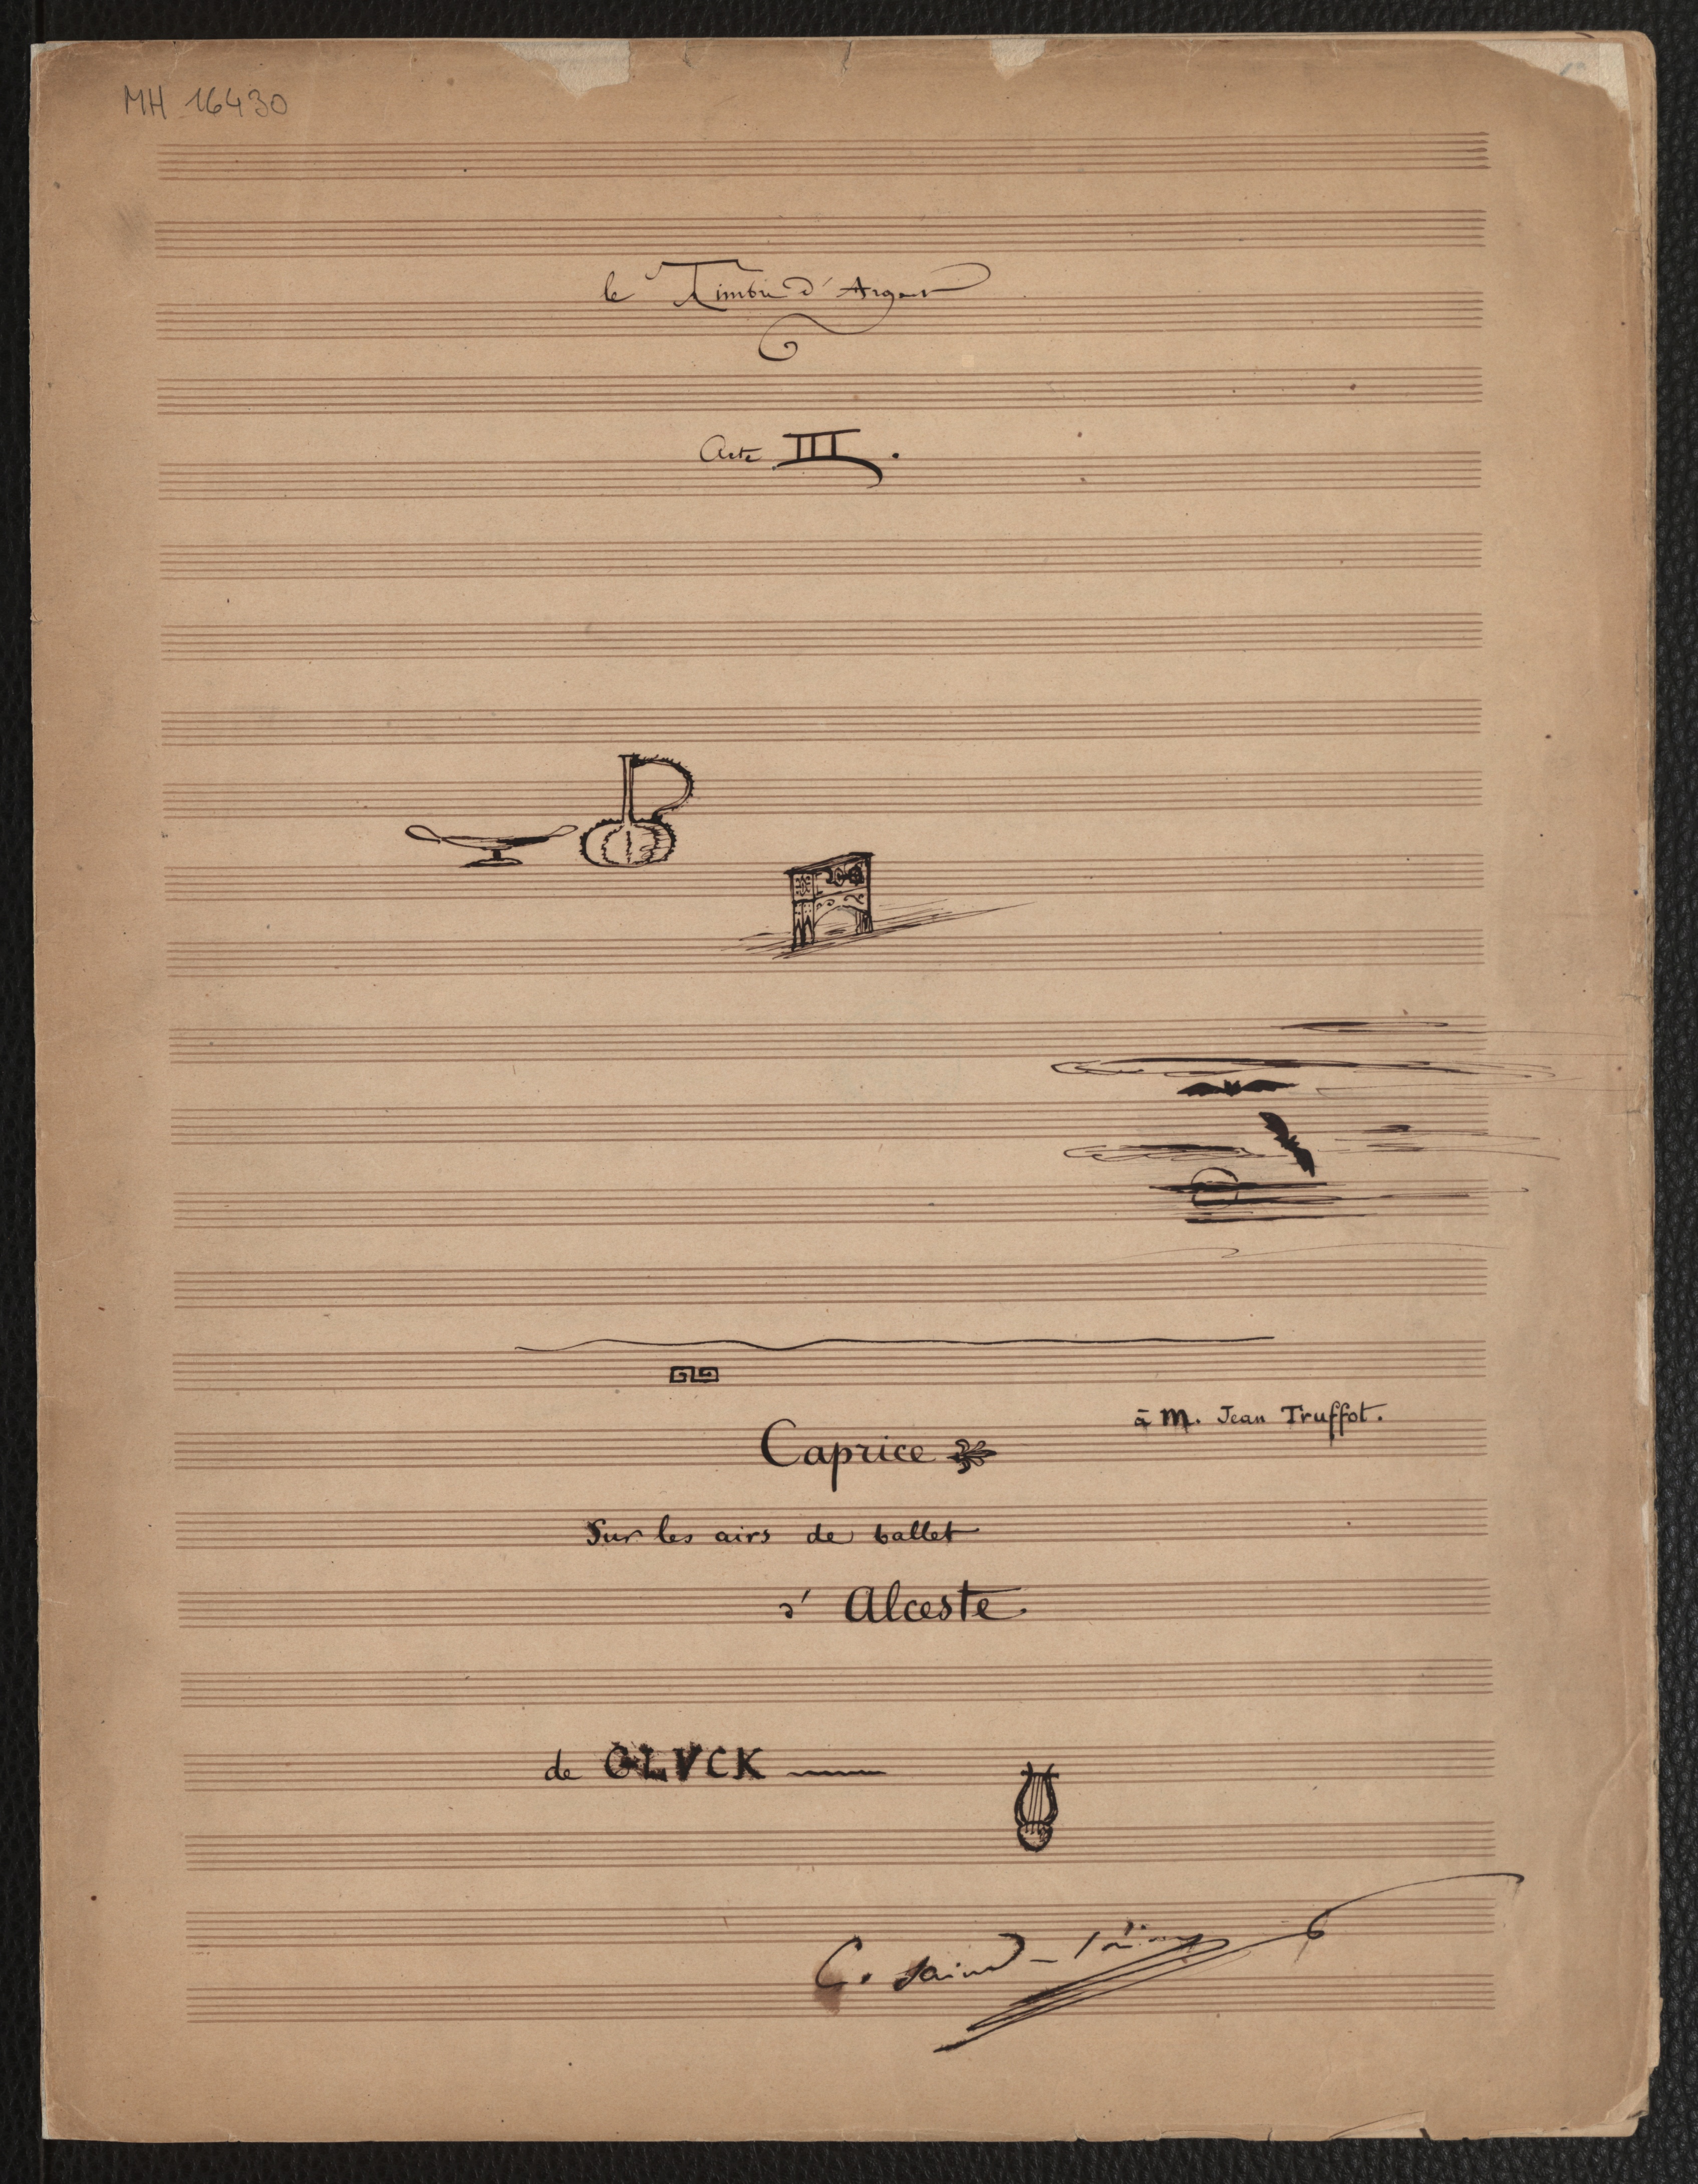 MH 16430
le Timbre d'Argent
Acte III.
à M. Jean Truffot.
Caprice
Sur les airs de ballet
d' Alceste
de GLVCK
C. Saint-Saëns